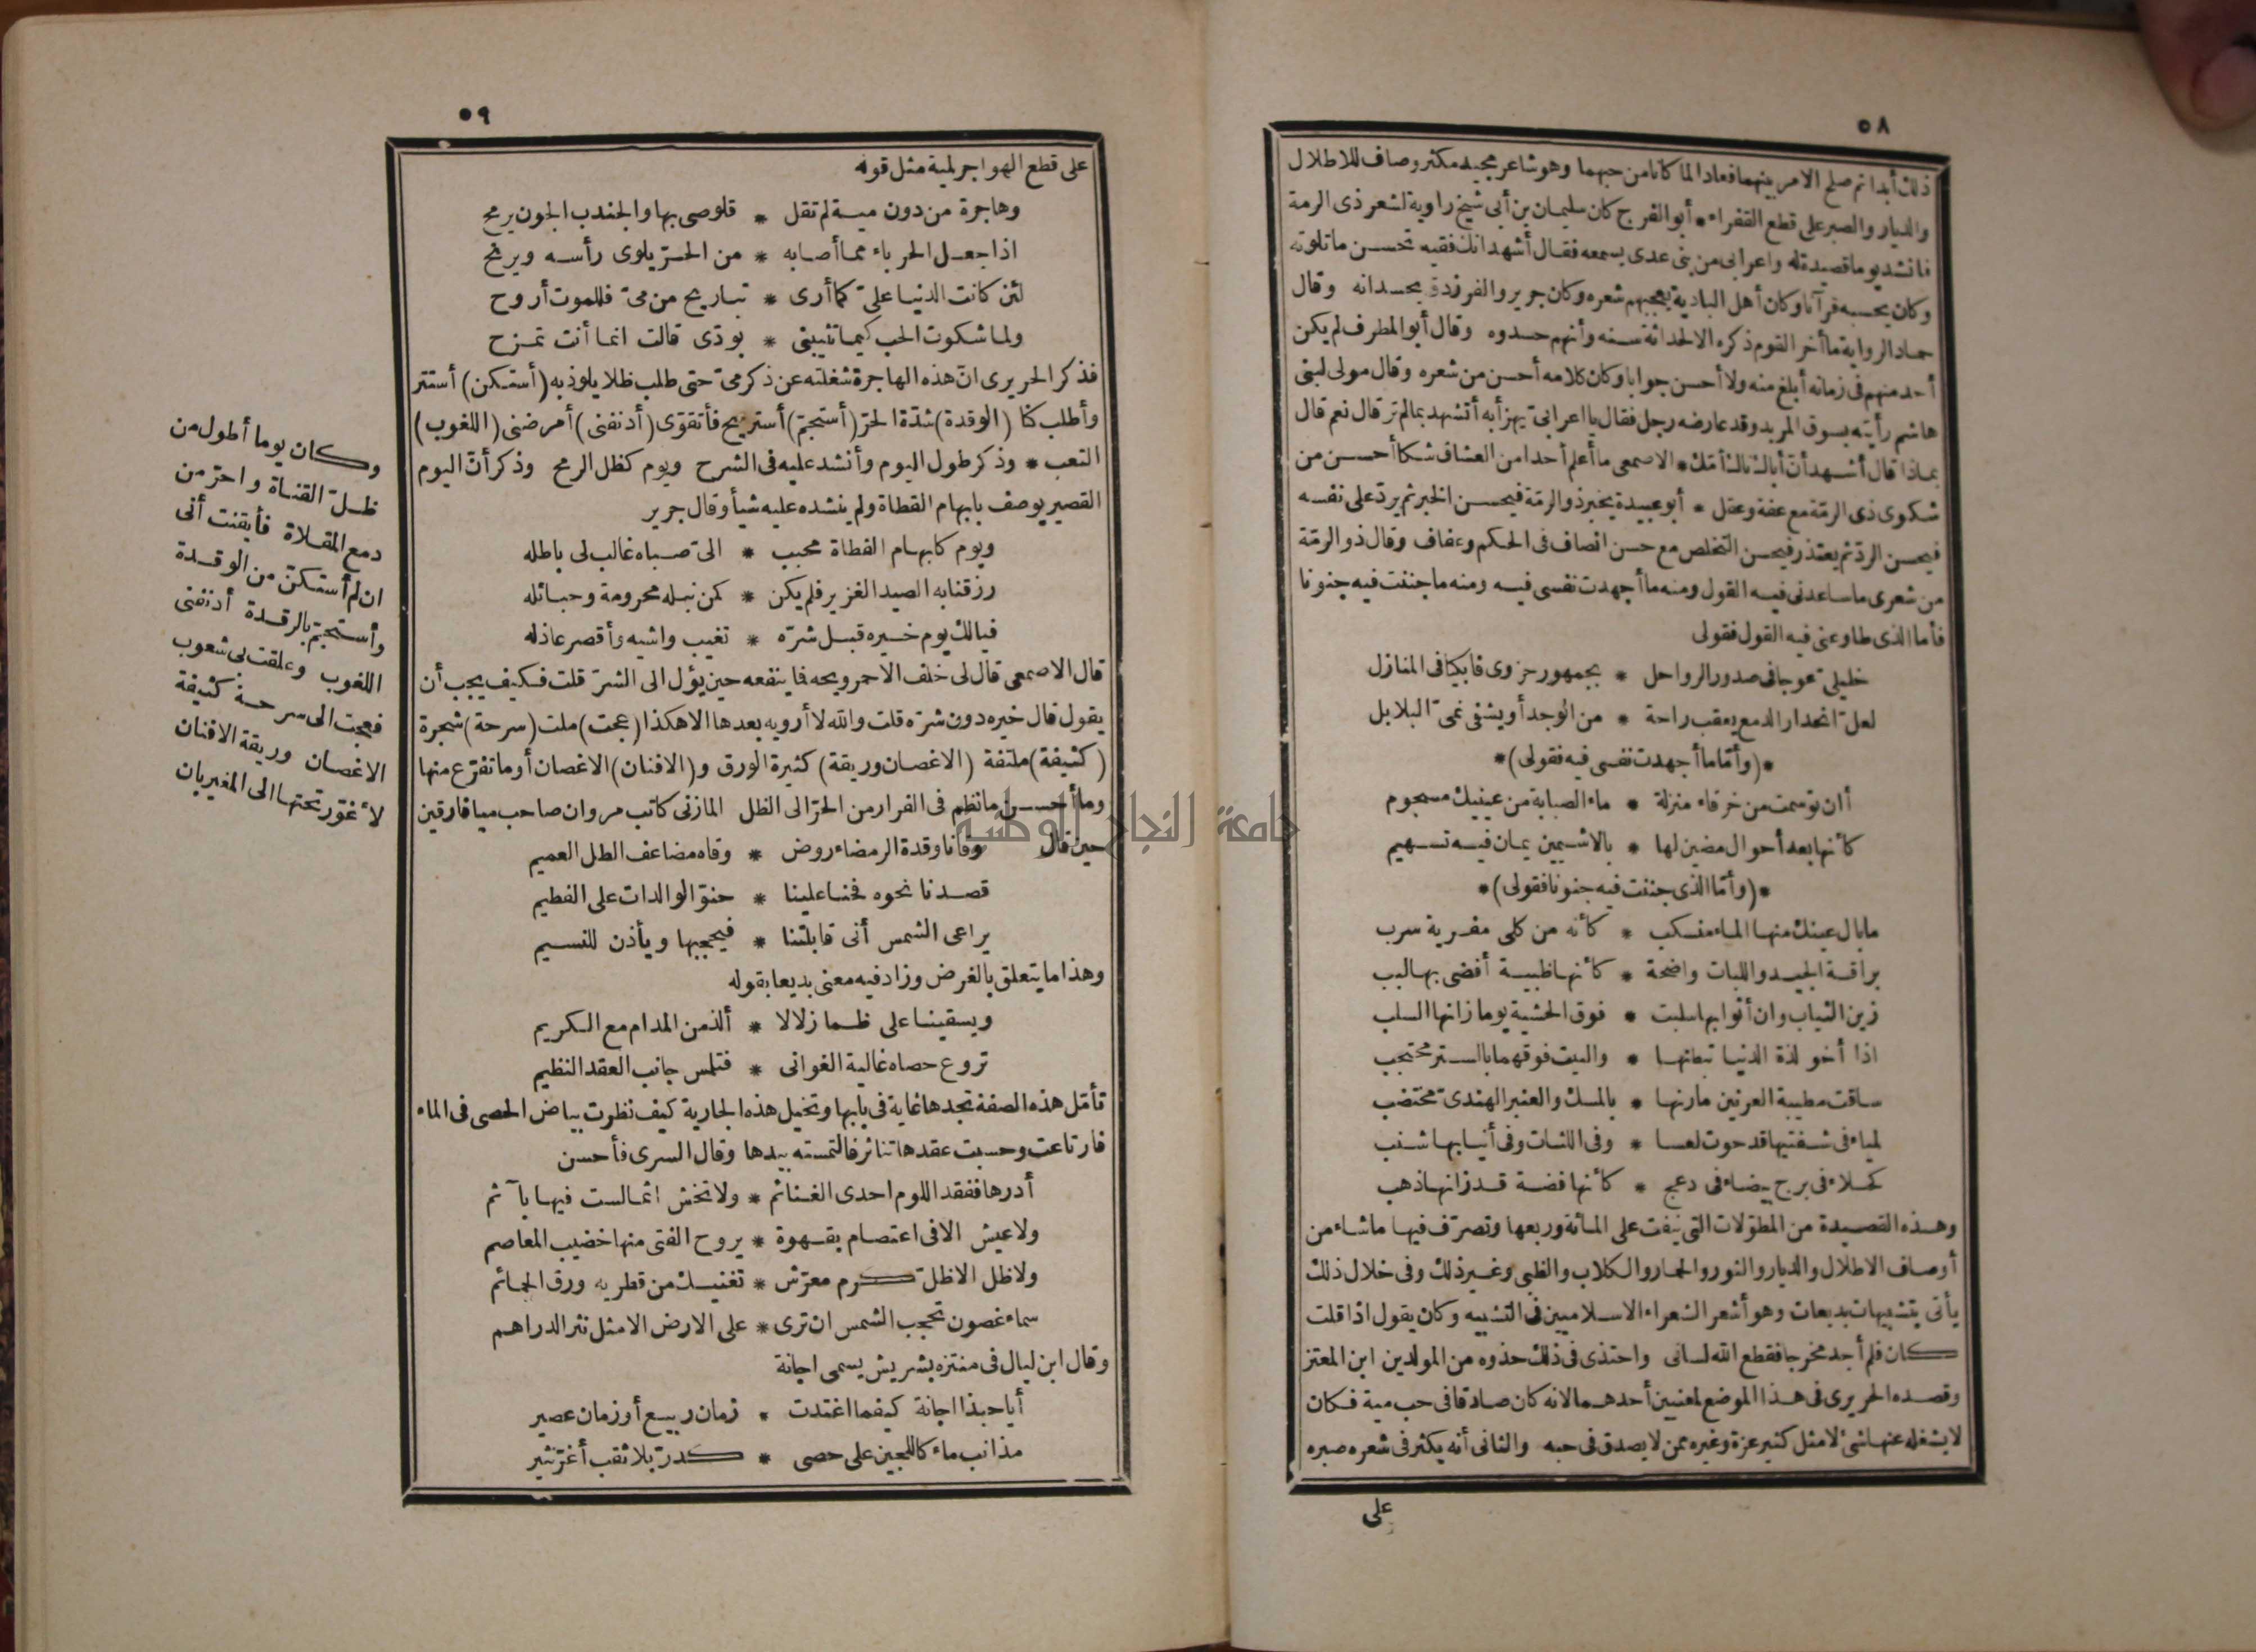 ٥٨
ذلك أبدا ثم صلح الامر بينهما فعاد الما كانا من حبهما وهو شاعر مجيد مكثر وصاف للاطلال
والديار والصبر على قطع القفراء * أبو الفرج كان سليمان بن أبى شيخ راوية لشعر ذى الرمة
فانشد يوما قصيدة له واعرابى من بنى عدى يسمعه فقال أشهد انك فقيه تحسن ما تلوته
وكان يحسبه قرآنا وكان أهل البادية يعجبهم شعره وكان جرير والفرزدق يحسدانه وقال
حماد الرواية ما أخر القوم ذكره الا لحداثة سنه وأنهم حسدوه وقال أبو المطرف لم يكن
أحد منهم فى زمانه أبلغ منه ولا أحسن جوابا وكان كلامه أحسن من شعره وقال مولى لبنى
هاشم رأيته بسوق المربد وقد عارضه رجل فقال يا اعرابى يهزأ به أتشهد بما لم تر قال نعم قال
بماذا قال أشهد أن أباك ناك أمك * الاصمعى ما أعلم أحدا من العشاق شكا أحسن من
شكوى ذى الرمّة مع عفة وعقل * أبو عبيدة يخبر ذو الرمّة فيحسن الخبر ثم يردّ على نفسه
فيحسن الردّ ثم يعتذر فيحسن التخلص مع حسن انصاف فى الحكم وعفاف وقال ذو الرمّة
من شعرى ما ساعدنى فيه القول ومنه ما أجهدت نفسى فيه ومنه ما جننت فيه جنونا
فأما الذى طاوعنى فيه القول فقولى
خليلىّ عوجا فى صدور الرواحل * بجمهور حزوى فابكيا فى المنازل
لعلّ انحدار الدمع يعقب راحة * من الوجد أو يشفى نجىّ البلابل
*(وأمّا ما أجهدت نفسى فيه فقولى)*
أان توسمت من خرقاء منزلة * ماء الصبابة من عينيك مسجوم
كأنها بعد أحوال مضين لها * بالاشيمين يمان فيه تسهيم
*(وأمّا الذى جننت فيه جنونا فقولى)*
ما بال عينك منها الماء منسكب * كأنه من كلى مفرية سرب
براقة الجيد واللبات واضحة * كأنها ظبية أفضى بها لبب
زين الثياب وان أثوابها سلبت * فوق الحشية يوما زانها السلب
اذا أخو لذة الدنيا تبطنها * والبيت فوقهما بالستر محتجب
سافت مطيبة العرنين مارنها * بالمسك والعنبر الهندىّ مختضب
لمياء فى شفتيها قد حوت لعسا * وفى اللثات وفى أنيابها شنب
كحلاء فى برج بيضاء فى دعج * كأنها فضة قد زانها ذهب
وهذه القصيدة من المطوّلات التى نيفت على المائة وربعها وتصرّف فيها ما شاء من
أوصاف الاطلال والديار والثور والحمار والكلاب والظبى وغير ذلك وفى خلال ذلك
يأتى بتشبيهات بديعات وهو أشعر الشعراء الاسلاميين فى التشبيه وكان يقول اذا قلت
كان فلم أجد مخرجا فقطع الله لسانى واحتذى فى ذلك حذوه من المولدين ابن المعتز
وقصده الحريرى فى هذا الموضع لمعنيين أحدهما لانه كان صادقا فى حب مية فكان
لا يشغله عنها شئ لا مثل كثير عزة وغيره ممن لا يصدق فى حبه والثانى أنه يكثر فى شعره صبره
على
٥٩
على قطع الهواجر لمية مثل قوله
وهاجرة من دون مية لم تقل * قلوصى بها والجندب الجون يرمح
اذا جعل الحرباء مما أصابه * من الحرّ يلوى رأسه ويرنح
لئن كانت الدنيا علىّ كما أرى * تباريح من مىّ فللموت أروح
ولما شكوت الحب كيما تثيبنى * بودّى قالت انما أنت تمزح
فذكر الحريرى انّ هذه الهاجرة شغلته عن ذكر مىّ حتى طلب ظلا يلوذ به (أستكن) أستتر
وأطلب كنا (الوقدة) شدّة الحرّ (أستجمّ) أستريح فأتقوّى (أدنفنى) أمرضنى (اللغوب)
التعب * وذكر طول اليوم وأنشد عليه فى الشرح ويوم كظل الرمح وذكر أنّ اليوم
القصير يوصف بابهام القطاة ولم ينشده عليه شيأ وقال جرير
ويوم كابهام القطاة محبب * الىّ صباه غالب لى باطله
رزقنا به الصيد الغزير فلم يكن * كمن نبله محرومة وحبائله
فيالك يوم خيره قبل شرّه * تغيب واشيه وأقصر عاذله
قال الاصمعى قال لى خلف الاحمر ويحه فما ينفعه حين يؤل الى الشرّ قلت فكيف يجب أن
يقول قال خيره دون شرّه قلت والله لا أرويه بعدها الا هكذا (عجت) ملت (سرحة) شجرة
(كثيفة) ملتفة (الاغصان وريقة) كثيرة الورق و(الافنان) الاغصان أو ما تفرّع منها
وما أحسن ما نظم فى الفرار من الحرّ الى الظل المازنى كاتب مروان صاحب ميافارقين
حين قال وقانا وقدة الرمضاء روض * وقاه مضاعف الطل العميم
قصدنا نحوه فحنا علينا * حنوّ الوالدات على الفطيم
يراعى الشمس أنى قابلتنا * فيحجبها ويأذن للنسيم
وهذا ما يتعلق بالغرض وزاد فيه معنى بديعا بقوله
ويسقينا على ظما زلالا * ألذ من المدام مع الكريم
تروع حصاه غالية الغوانى * فتلمس جانب العقد النظيم
تأمّل هذه الصفة تجدها غاية فى بابها وتخيل هذه الجارية كيف نظرت بياض الحصى فى الماء
فارتاعت وحسبت عقدها تناثر فالتمسته بيدها وقال السرى فأحسن
أدرها ففقد اللوم احدى الغنائم * ولا تخش اثما لست فيها بآثم
ولا عيش الا فى اعتصام بقهوة * يروح الفتى منها خضيب المعاصم
ولا ظل الا ظلّ كرم معرّش * تغنيك من قطريه ورق الحمائم
سماء غصون تحجب الشمس ان ترى * على الارض الا مثل نثر الدراهم
وقال ابن لبال فى منتزه بشريش يسمى اجانة
أيا حبذا اجانة كيفما اغتدت * زمان ربيع أو زمان عصير
مذانب ماء كاللجين على حصى * كدرّ بلا ثقب أغرّ نثير
وكان يوما أطول من
ظلّ القناة واحرّ من
دمع المقلاة فأيقنت أنى
ان لم أستكنّ من الوقدة
وأستجمّ بالرقدة أدنفنى
اللغوب وعلقت بى شعوب
فعجت الى سرحة كثيفة
الاغصان وريقة الافنان
لأغوّر تحتها الى المغيربان
جامعة النجاح الوطنية